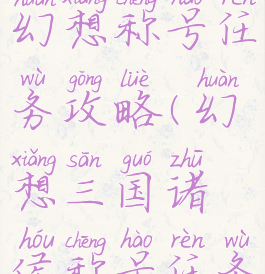 huàn xiǎng chēng hào rèn
幻想称号任
wù gōng lüè huàn
务攻略(幻
xiǎng sān guó zhū
想三国诸
hóu chēng hào rèn wù
侯称号任务